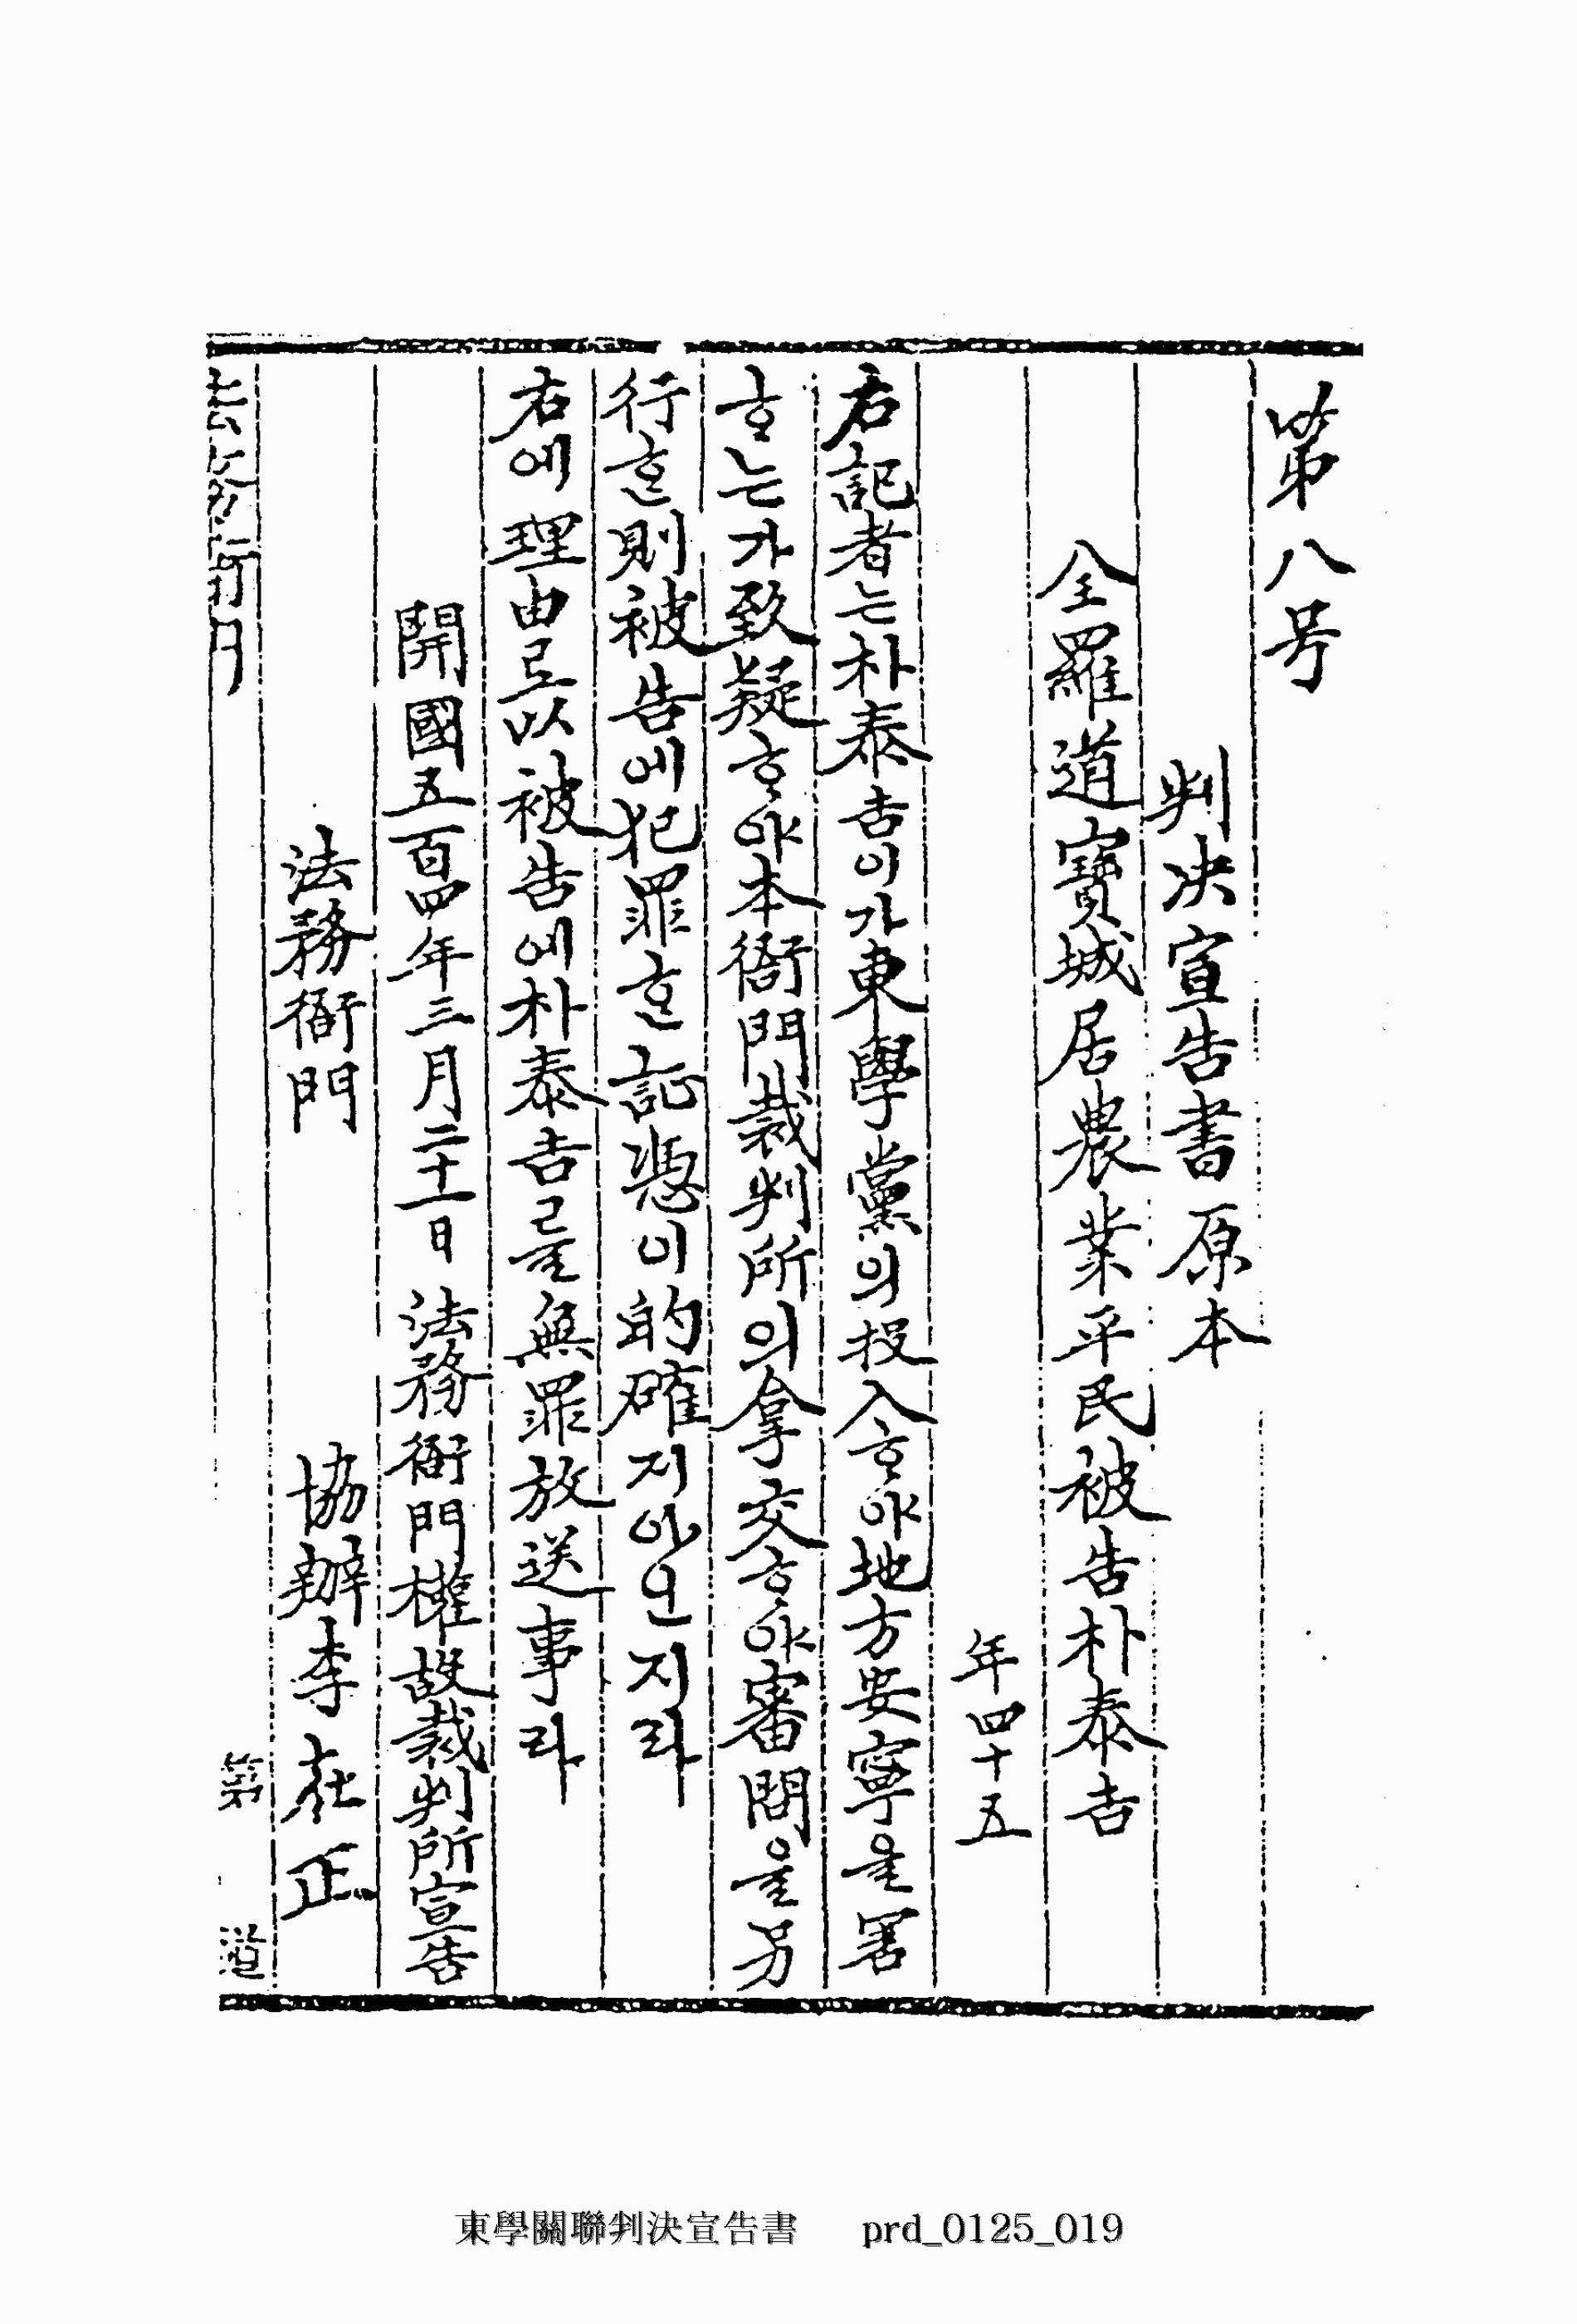 第八号
判決宣告書原本
全羅道寶城居農業平民被告朴泰吉
年四十五
右記者는朴泰吉이가東學黨의投入ᄒᆞ야地方安寧을害
ᄒᆞ는가致疑ᄒᆞ야本衙門裁判所의拿交ᄒᆞ야審問을另
行ᄒᆞᆫ則被告에犯罪ᄒᆞᆫ記憑이的確지아인지라
右에理由로以被告에朴泰吉를無罪放送事라
開國五百四年三月二十一日法務衙門權設裁判所宣告
法務衙門 協辦李在正
法務衙門 第 道
東學關聯判決宣告書 prd_0125_019